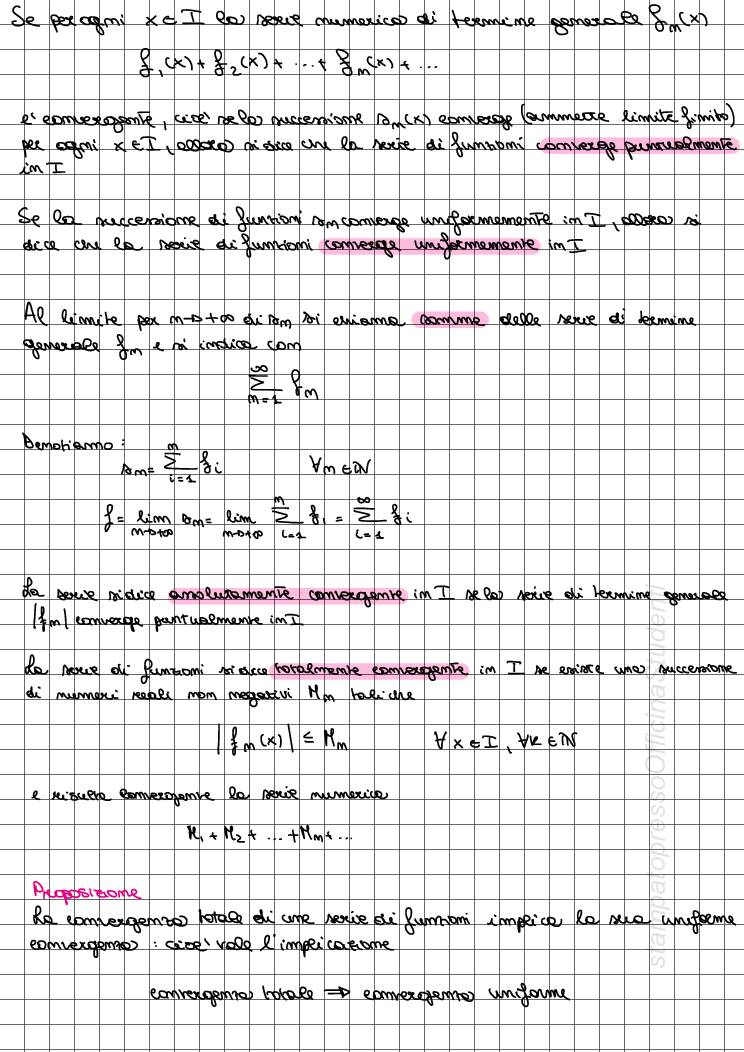 Se per ogni x ∈ I la serie numerica di termine generale fₙ(x)
f₁(x) + f₂(x) + ... + fₙ(x) + ...
e' convergente, cioè se la successione sₙ(x) converge (ammette limite finito)
per ogni x ∈ I, allora si dice che la serie di funzioni converge puntualmente
in I
Se la successione di funzioni sₙ converge uniformemente in I, allora si
dice che la serie di funzioni converge uniformemente in I
Al limite per n→+∞ di sₙ si chiama somma della serie di termine
generale fₙ e si indica con
∞
Σ fₙ
n=1
Denotiamo:
sₙ = Σⁿᵢ₌₁ fᵢ ∀n ∈ ℕ
f = lim n→+∞ sₙ = lim n→+∞ Σⁿᵢ₌₁ fᵢ = Σ^∞ᵢ₌₁ fᵢ
La serie si dice assolutamente convergente in I se la serie di termine generale
|fₙ| converge puntualmente in I
La serie di funzioni si dice totalmente convergente in I se esiste una successione
di numeri reali non negativi Mₙ tali che
|fₙ(x)| ≤ Mₙ ∀x ∈ I, ∀k ∈ ℕ
e risulta convergente la serie numerica
M₁ + M₂ + ... + Mₙ + ...
Proposizione
La convergenza totale di una serie di funzioni implica la sua uniforme
convergenza: cioè vale l'implicazione
convergenza totale ⇒ convergenza uniforme
stampatopressoOfficinaStudenti